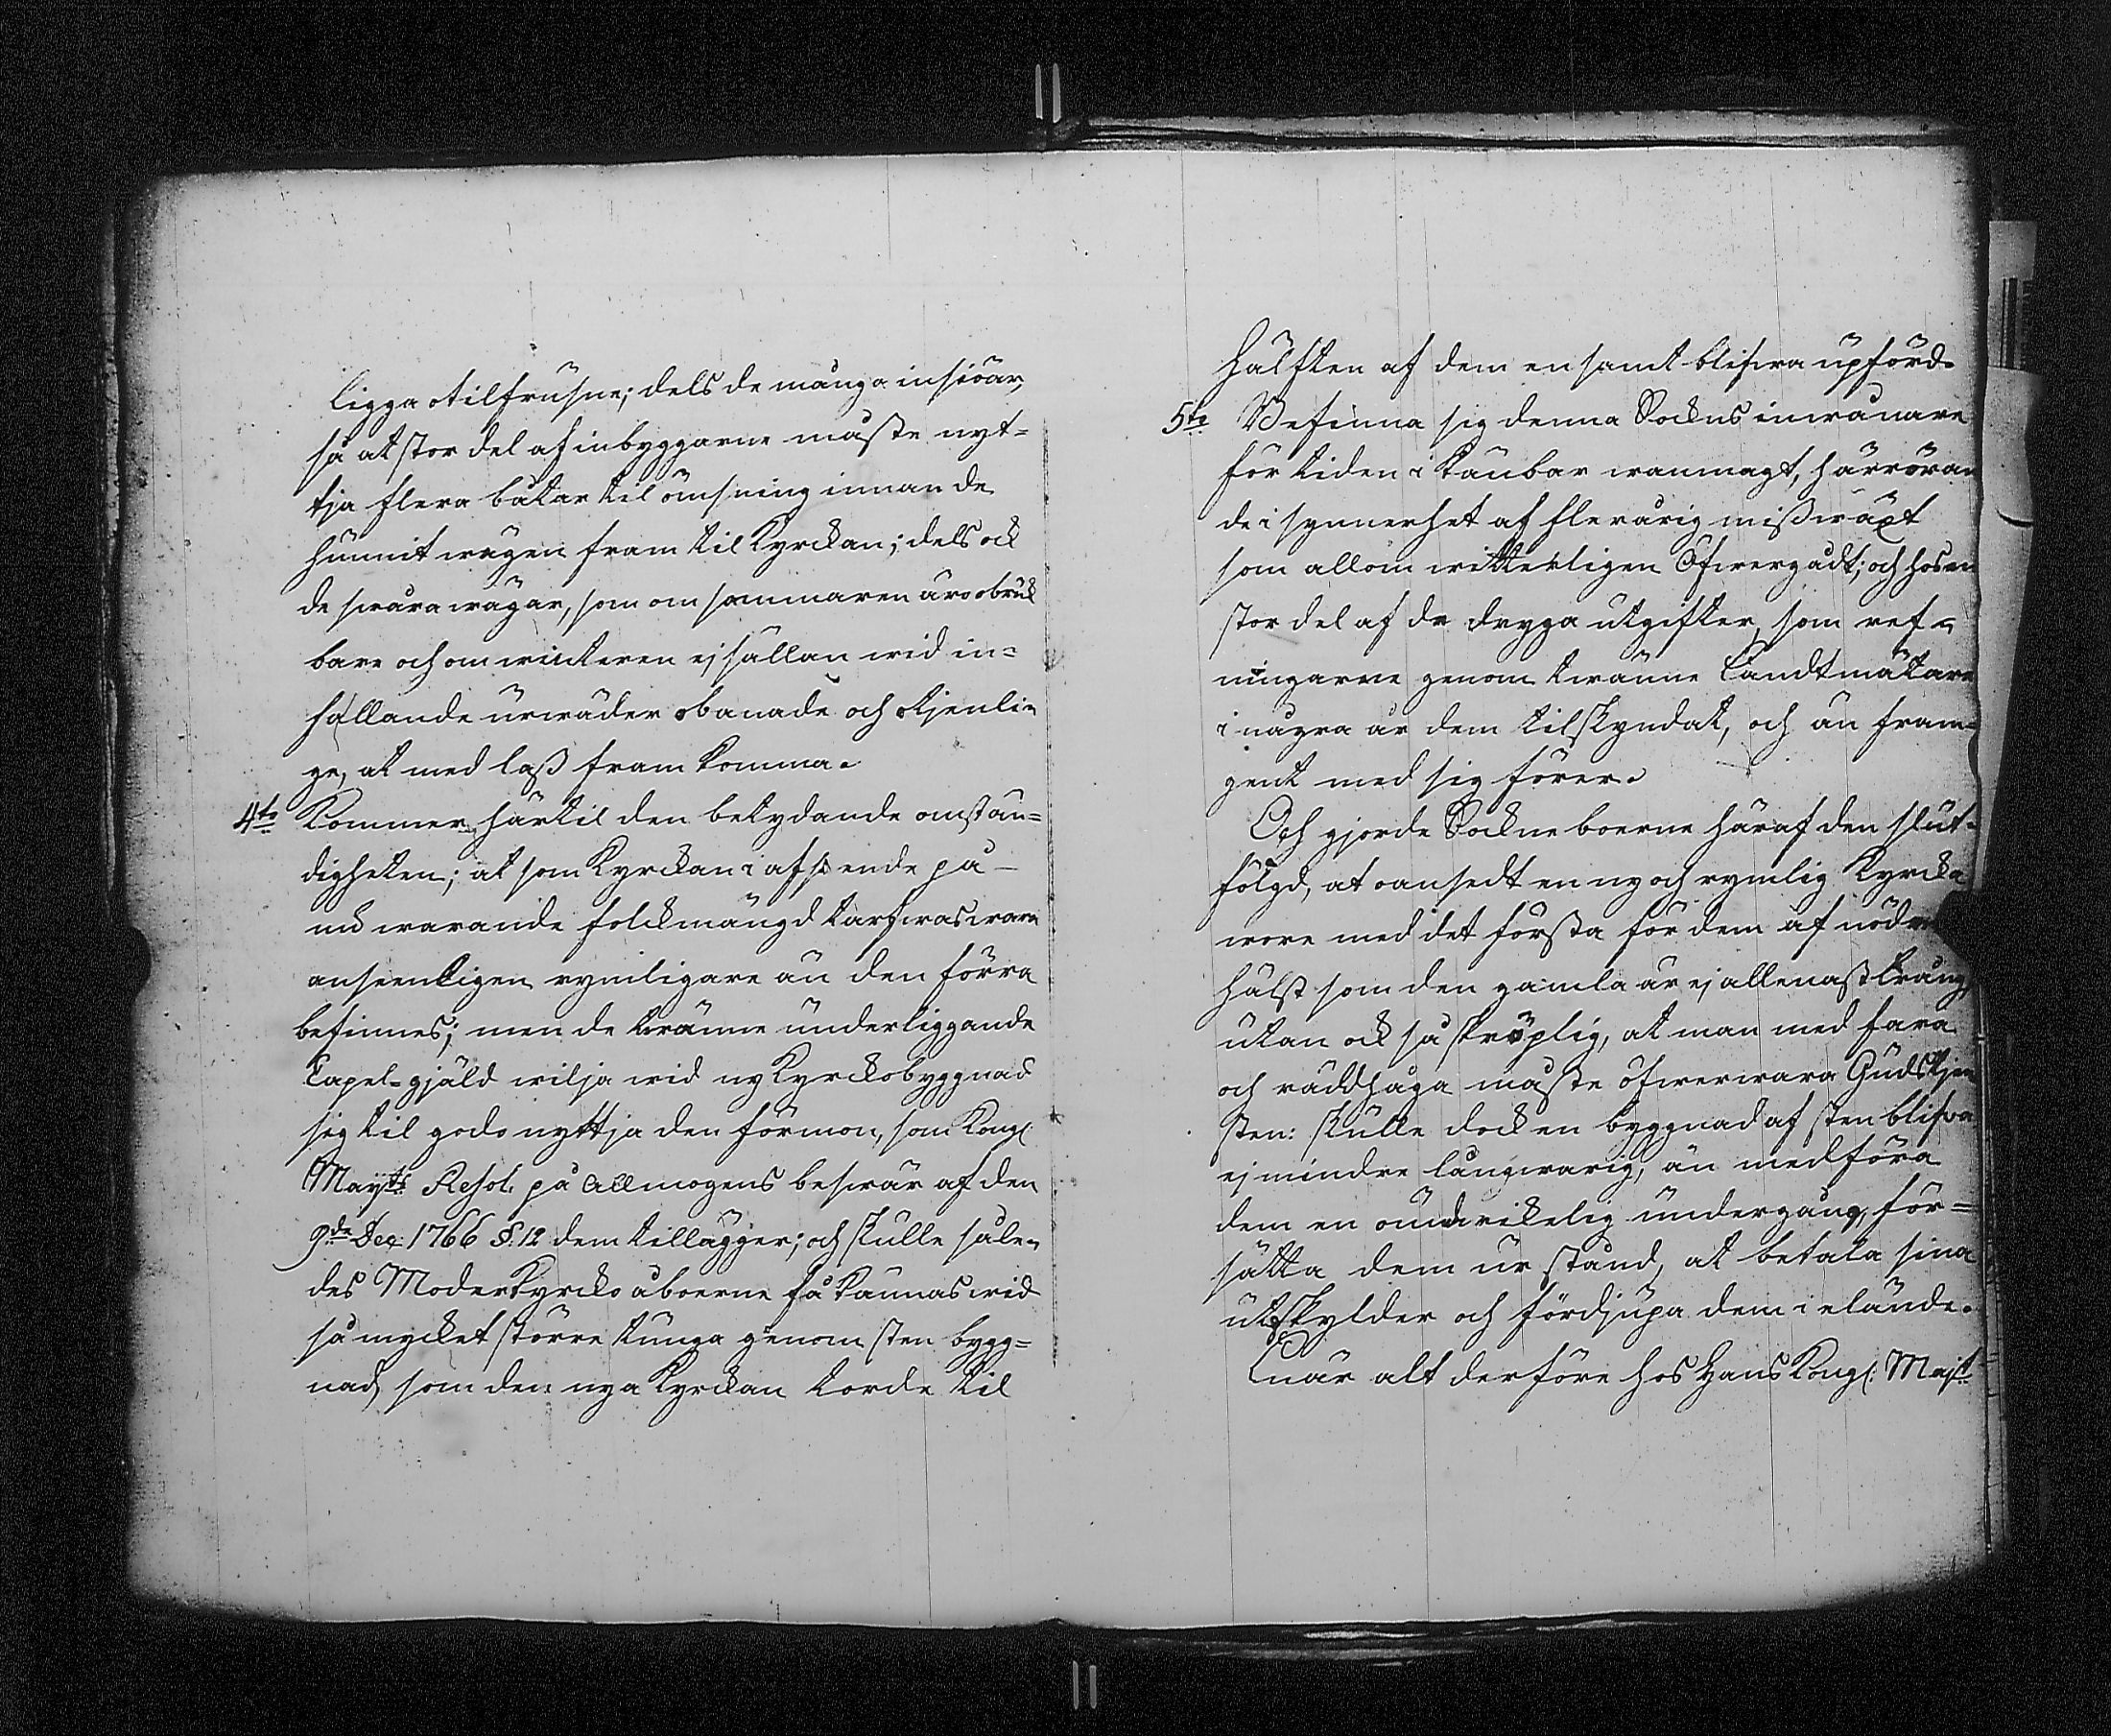 ligga otilfrusne; dels de många insiöar,
så at stor del af inbyggarne måste nyt=
tja flera båtar til ömsning innan de
hunnit wägen fram til Kyrckan; dels ock
de swåra wägar, som om sommaren äro obruk
bare och om winteren ej sällan wid in=
fallande urwäder obanade och otjenli=
ge, at med lass fram komma.
4to Kommer härtil den betydande omstän=
digheten; at som Kyrckan i afseende på
nu warande folckmängd tarfwas wara
anseenligen rymligare än den förra
befinnes; men de twänne underliggande
Capel-gjäld wilja wid ny Kyrckobyggnad
sig til godo nyttja den förmon, som Kongl
Mayts Resol. på Allmogens beswär af den
9de Dec: 1766 §. 12 dem tillägger; och skulle såle=
des Moderkyrcko åboerne få kännas wid
så mycket större tunga genom sten bygg=
nad, som den nya Kyrckan torde til
hälften af dem ensamt blifwa upförd.
5to Befinna sig denna Sockns inwånare
för tiden i kännbar wanmagt, härröran
de i synnerhet af flerårig misswäxt
som allom witterligen Öfwergådt; och hos en
stor del af de dryga utgifter, som ref=
ningarne genom twänne Landtmätare
i några år dem tilskyndat, och än fram=
gent med sig förer.
Och gjorde Sockneboerne häraf den slut=
fölgd, at oansedt en ny och rymlig Kyrcka
wore med det första för dem af nöden
hälst som den gamla är ej allenast trång,
utan ock så skröplig, at man med fara
och räddhåga måste öfwerwara Gudstjen
sten: skulle dock en byggnad af sten blifwa
ej mindre långwarig, än medföra
dem en oundwikelig undergång, för=
sätta dem ur stånd, at betala sina
utskylder och fördjupa dem i elände.
När alt derföre hos Hans Kongl: Majt